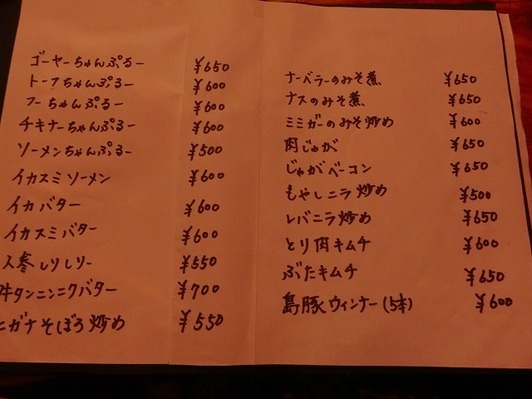 ゴーヤーちゃんぷるー ¥650
トーフちゃんぷるー ¥600
フーちゃんぷるー ¥600
チキナーちゃんぷるー ¥600
ソーメンちゃんぷるー ¥500
イカスミソーメン ¥600
イカバター ¥600
イカスミバター ¥600
人参しりしりー ¥550
牛タンニンニクバター ¥700
ニガナそぼろ炒め ¥550
ナーベラーのみそ煮 ¥650
ナスのみそ煮 ¥650
ミミガーのみそ炒め ¥600
肉じゃが ¥650
じゃがベーコン ¥650
もやしニラ炒め ¥500
レバニラ炒め ¥650
とり肉キムチ ¥600
ぶたキムチ ¥650
島豚ウィンナー(5本) ¥600